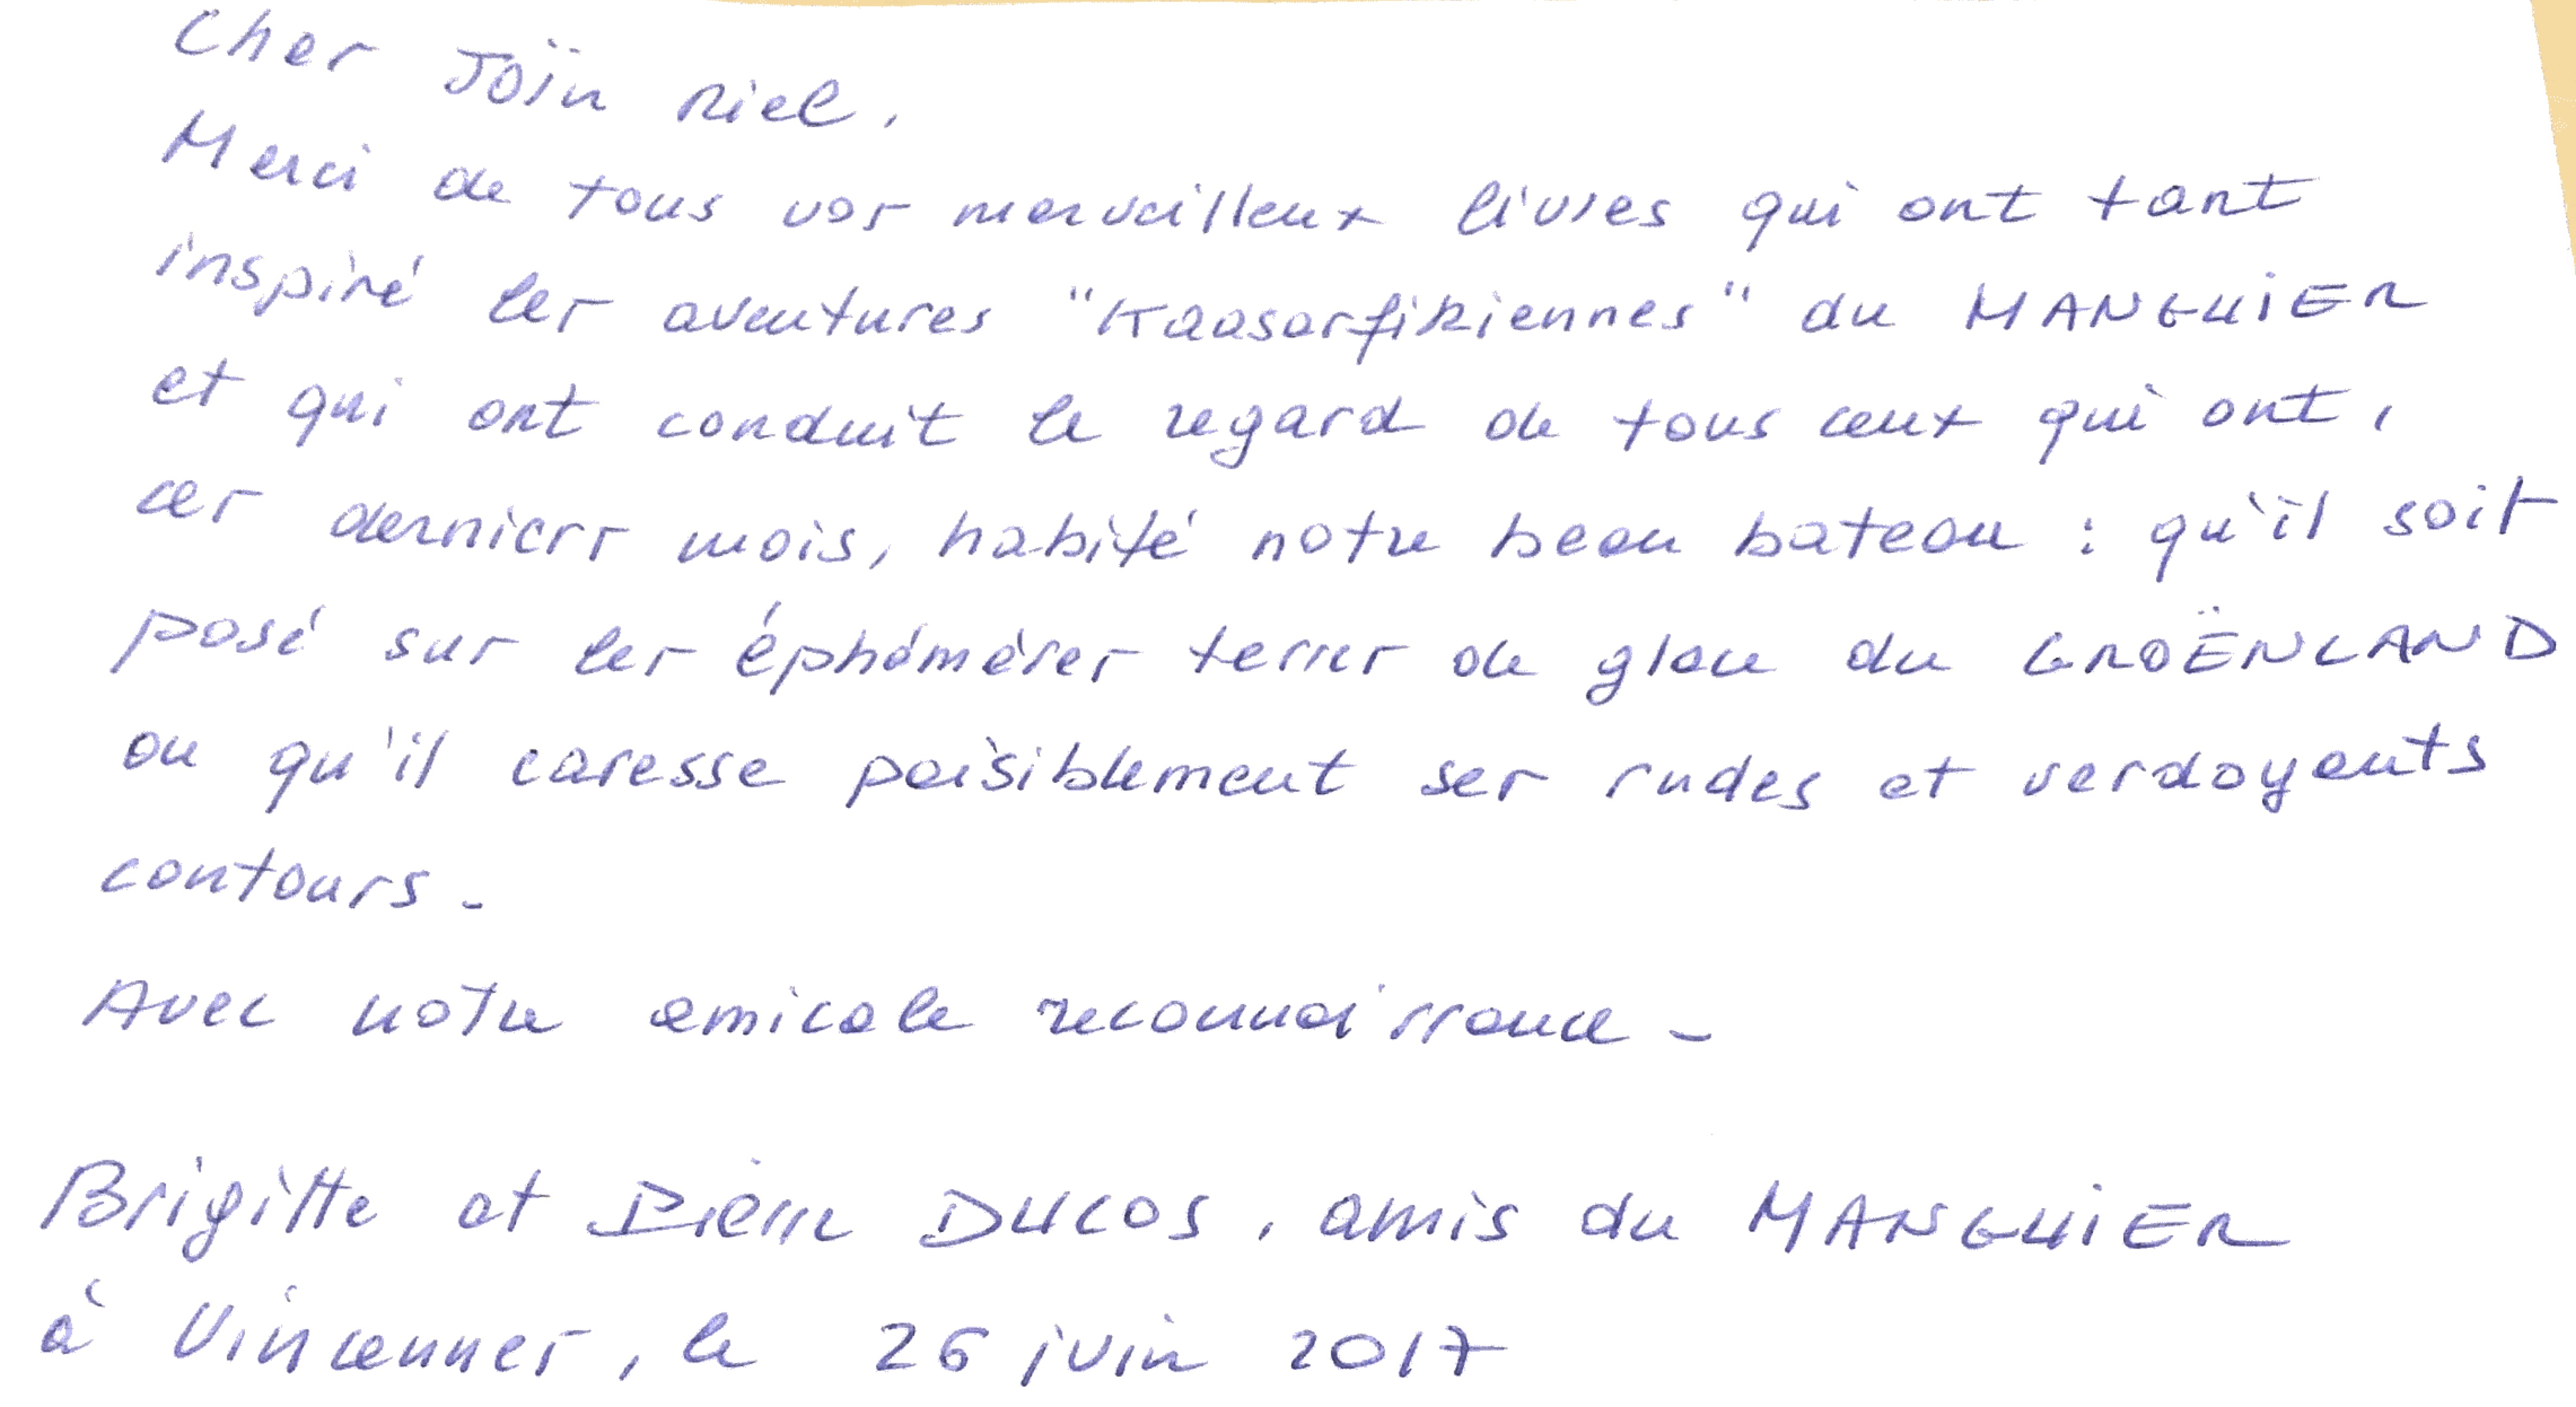 Cher Joïn Riel,
Merci de tous vos merveilleux livres qui ont tant
inspiré les aventures "Kaasarfikiennes" du MANGUiER
et qui ont conduit le regard de tous ceux qui ont,
ces derniers mois, habité notre beau bateau : qu'il soit
posé sur les éphémères terres de glace du GROËNLAND
ou qu'il caresse paisiblement ses rudes et verdoyants
contours -
Avec notre amicale reconnaissance -
Brigitte et Pierre DUCOS, amis du MANGUiER
à Vincennes, le 26 juin 2017